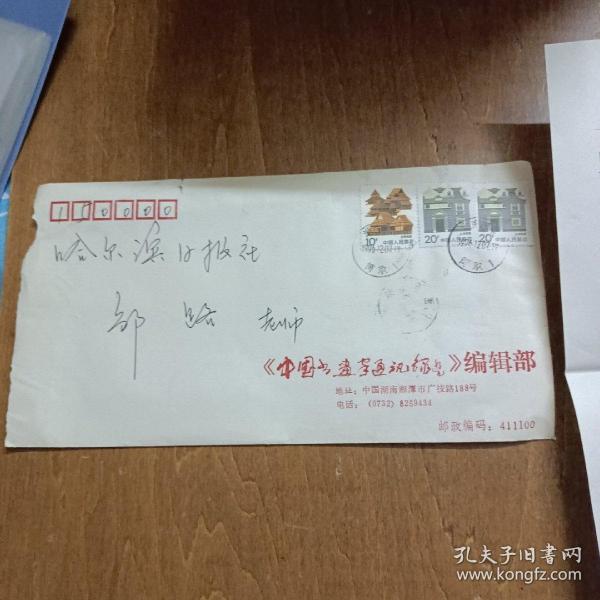 150000
10分 中国人民邮政
20分 中国人民邮政
20分 中国人民邮政
哈尔滨日报社
邹 路 老师
《中国书画家通讯录》编辑部
地址:中国湖南湘潭市广技路188号
电话:(0732)8259434
邮政编码:411100
孔夫子旧书网
www.kongfz.com